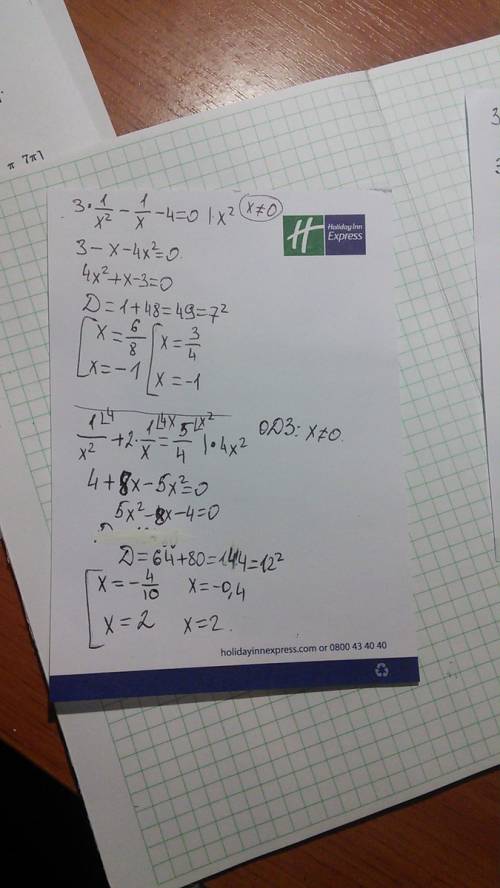 π 7π
3·1/x² − 1/x − 4=0 |·x² x≠0
Holiday Inn
Express
3 − x − 4x²=0.
4x²+x−3=0
D=1+48=49=7²
[x=6/8 [x=3/4
x=−1 x=−1
1/x² ⌊4 + 2·1/x ⌊4x = 5/4 ⌊x² |·4x² ОДЗ: x≠0.
4+8x−5x²=0
5x²−8x−4=0
D=64+80=144=12²
[x=−4/10 x=−0,4
x=2 x=2.
holidayinnexpress.com or 0800 43 40 40
3
3